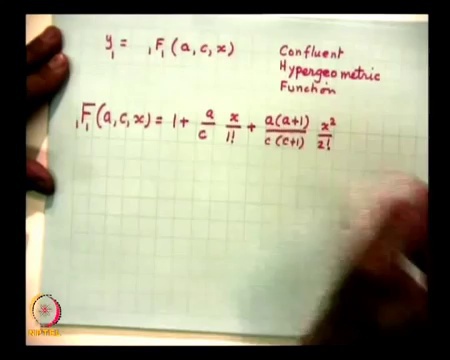 y₁ = ₁F₁ (a, c, x)
Confluent
Hypergeometric
Function
₁F₁(a, c, x) = 1 + a/c x/1! + a(a+1)/c(c+1) x²/2!
NPTEL